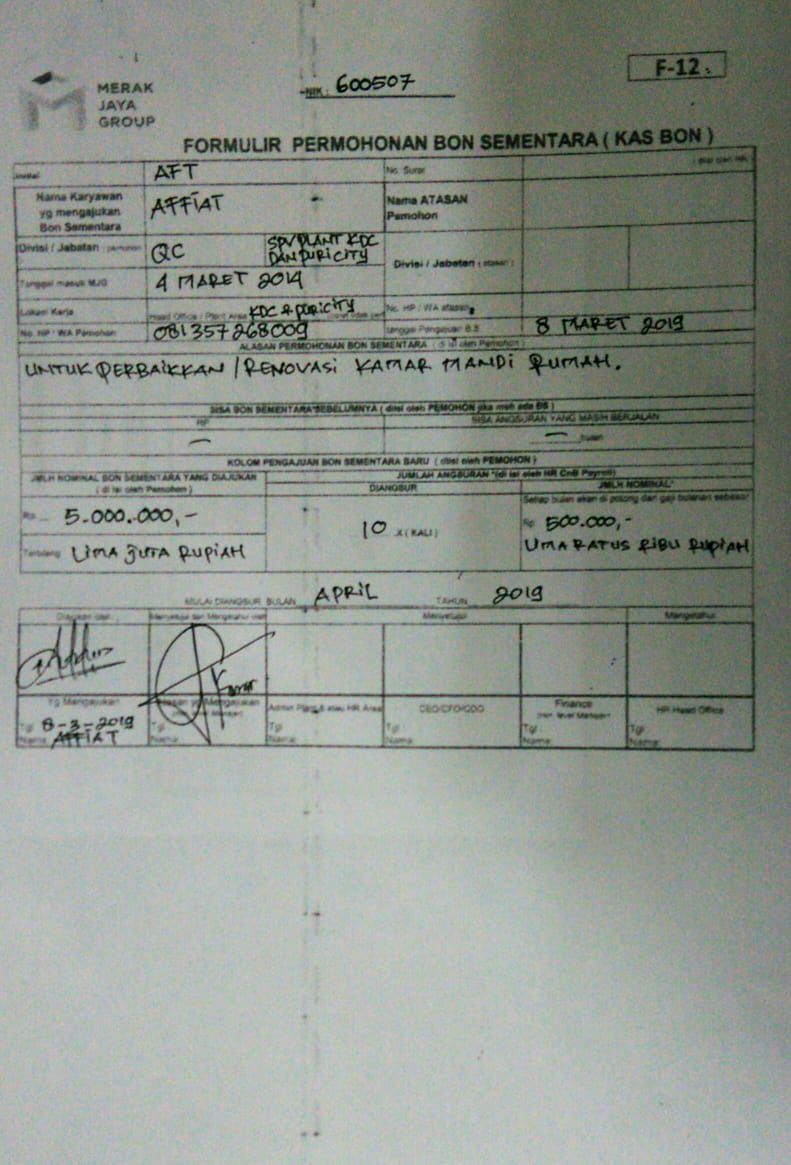 MERAK
JAYA
GROUP
NIK : 600507
F-12
FORMULIR PERMOHONAN BON SEMENTARA ( KAS BON )
Inisial AFT No. Surat ( diisi oleh HR )
Nama Karyawan
yg mengajukan
Bon Sementara
AFFIAT
Nama ATASAN
Pemohon
Divisi / Jabatan ( pemohon ) QC
SPV PLANT KDC
DAN PURI CITY
Divisi / Jabatan ( atasan )
Tanggal masuk MJG 4 MARET 2014
Lokasi Kerja Head Office / Plant Area KDC & PURICITY
No. HP / WA atasan
No. HP / WA Pemohon 081357268009 tanggal Pengajuan B.S 8 MARET 2019
ALASAN PERMOHONAN BON SEMENTARA ( di isi oleh Pemohon )
UNTUK PERBAIKKAN / RENOVASI KAMAR MANDI RUMAH.
SISA BON SEMENTARA SEBELUMNYA ( diisi oleh PEMOHON jika msh ada BS )
RP SISA ANGSURAN YANG MASIH BERJALAN
— — bulan
KOLOM PENGAJUAN BON SEMENTARA BARU ( diisi oleh PEMOHON )
JMLH NOMINAL BON SEMENTARA YANG DIAJUKAN
( di isi oleh Pemohon )
JUMLAH ANGSURAN *(di isi oleh HR CnB Payroll)
DIANGSUR JMLH NOMINAL*
Setiap bulan akan di potong dari gaji bulanan sebesar
Rp 5.000.000,- 10 X ( KALI ) Rp 500.000,-
Terbilang LIMA JUTA RUPIAH LIMA RATUS RIBU RUPIAH
MULAI DIANGSUR BULAN APRIL TAHUN 2019
Diajukan oleh Menyetujui dan Mengetahui oleh Menyetujui Mengetahui
Yg Mengajukan Atasan yg Mengajukan Admin Plant & atau HR Area CEO/CFO/COO Finance HR Head Office
(min. level Manager)
Tgl 8-3-2019 Tgl Tgl Tgl Tgl Tgl
Nama AFFIAT Nama Nama: Nama: Nama: Nama: